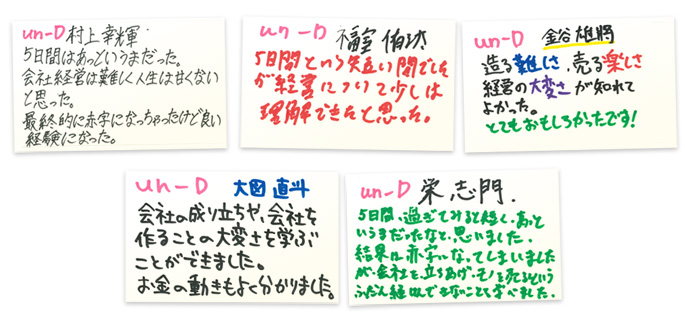 un-D 村上 幸輝
5日間はあっというまだった。
会社経営は難しく人生は甘くない
と思った。
最終的に赤字になっちゃったけど良い
経験になった。
un-D 福室 侑功
5日間という短い間でした
が経営について少しは
理解できたと思った。
un-D 金谷 雄将
造る難しさ、売る楽しさ
経営の大変さが知れて
よかった。
とてもおもしろかったです!
un-D 大図 直斗
会社の成り立ちや、会社を
作ることの大変さを学ぶ
ことができました。
お金の動きもよく分かりました。
un-D 栄 志門.
5日間、過ぎてみると短く、あっと
いうまだったなと、思いました。
結果は赤字になってしまいました
が、会社を立ちあげ、モノを売るという
ふだん経験できないことを学べました。